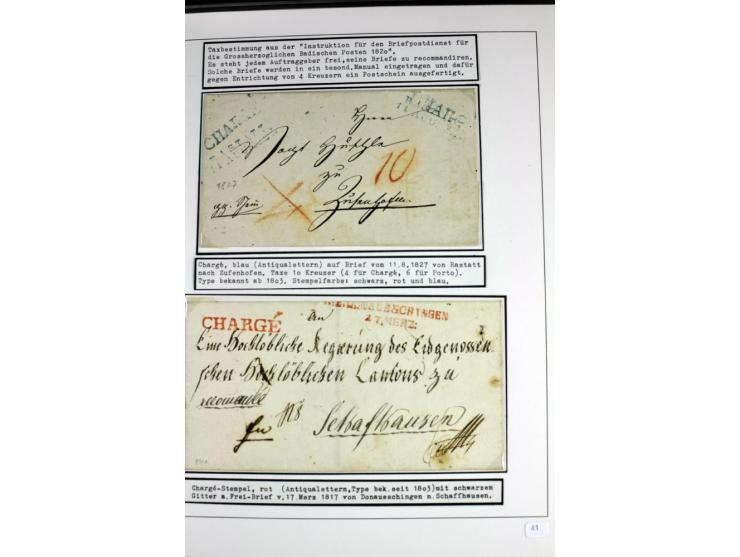 Taxbestimmung aus der "Instruktion für den Briefpostdienst für
die Grossherzoglichen Badischen Posten 182o".
Es steht jedem Auftraggeber frei,seine Briefe zu recommandiren.
Solche Briefe werden in ein besond.Manual eingetragen und dafür
gegen Entrichtung von 4 Kreuzern ein Postschein ausgefertigt.
Herrn
Vogt Hüthle
zu
10
1827
Zusenhofen.
Chargé, blau (Antiqualettern) auf Brief vom 11.8.1827 von Rastatt
nach Zufenhofen. Taxe 1o Kreuzer (4 für Chargè, 6 für Porto).
Type bekannt ab 18o3. Stempelfarbe: schwarz, rot und blau.
17. MERZ.
CHARGÉ
An
Eine Hochlöbliche Regierung des Eidgenössen
schen Hochlöblichen Cantons zu
recomandée
Schafhausen
Chargé-Stempel, rot (Antiqualettern,Type bek.seit 18o3)mit schwarzem
Gitter a.Frei-Brief v.17.Merz 1817 von Donaueschingen n.Schaffhausen.
41